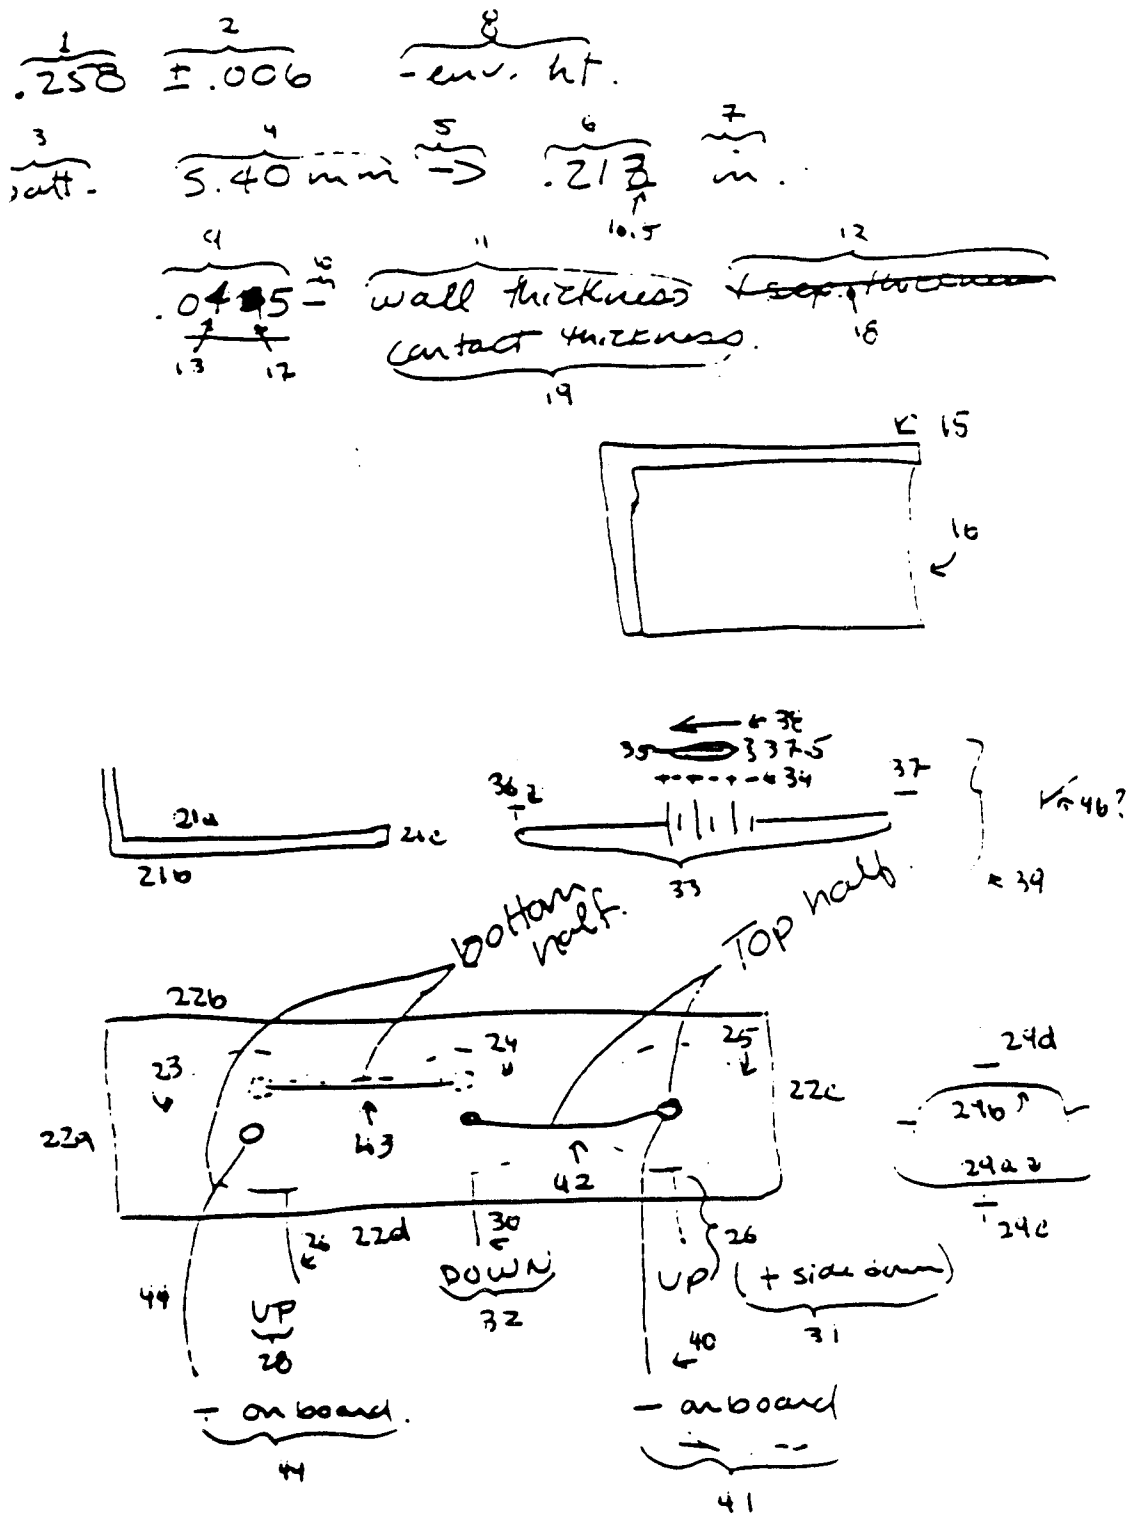 1 2 8
.258 ±.006 -env. ht.
3 4 5 6 7
batt. 5.40 mm -> .213 in.
10.5
9 10 11 12
.0445 - wall thickness
13 17 contact thickness. 18
19
15
16
38
35 37.5
36 34 37
21a 21c 46?
21b 33 39
bottom half. TOP half.
22b
23 24 25 29d
22a 43 22c 29b
42 29a
26 22d 30 26 29c
44 UP DOWN UP (+ side down)
28 32 31
40
- on board. - on board
44 41